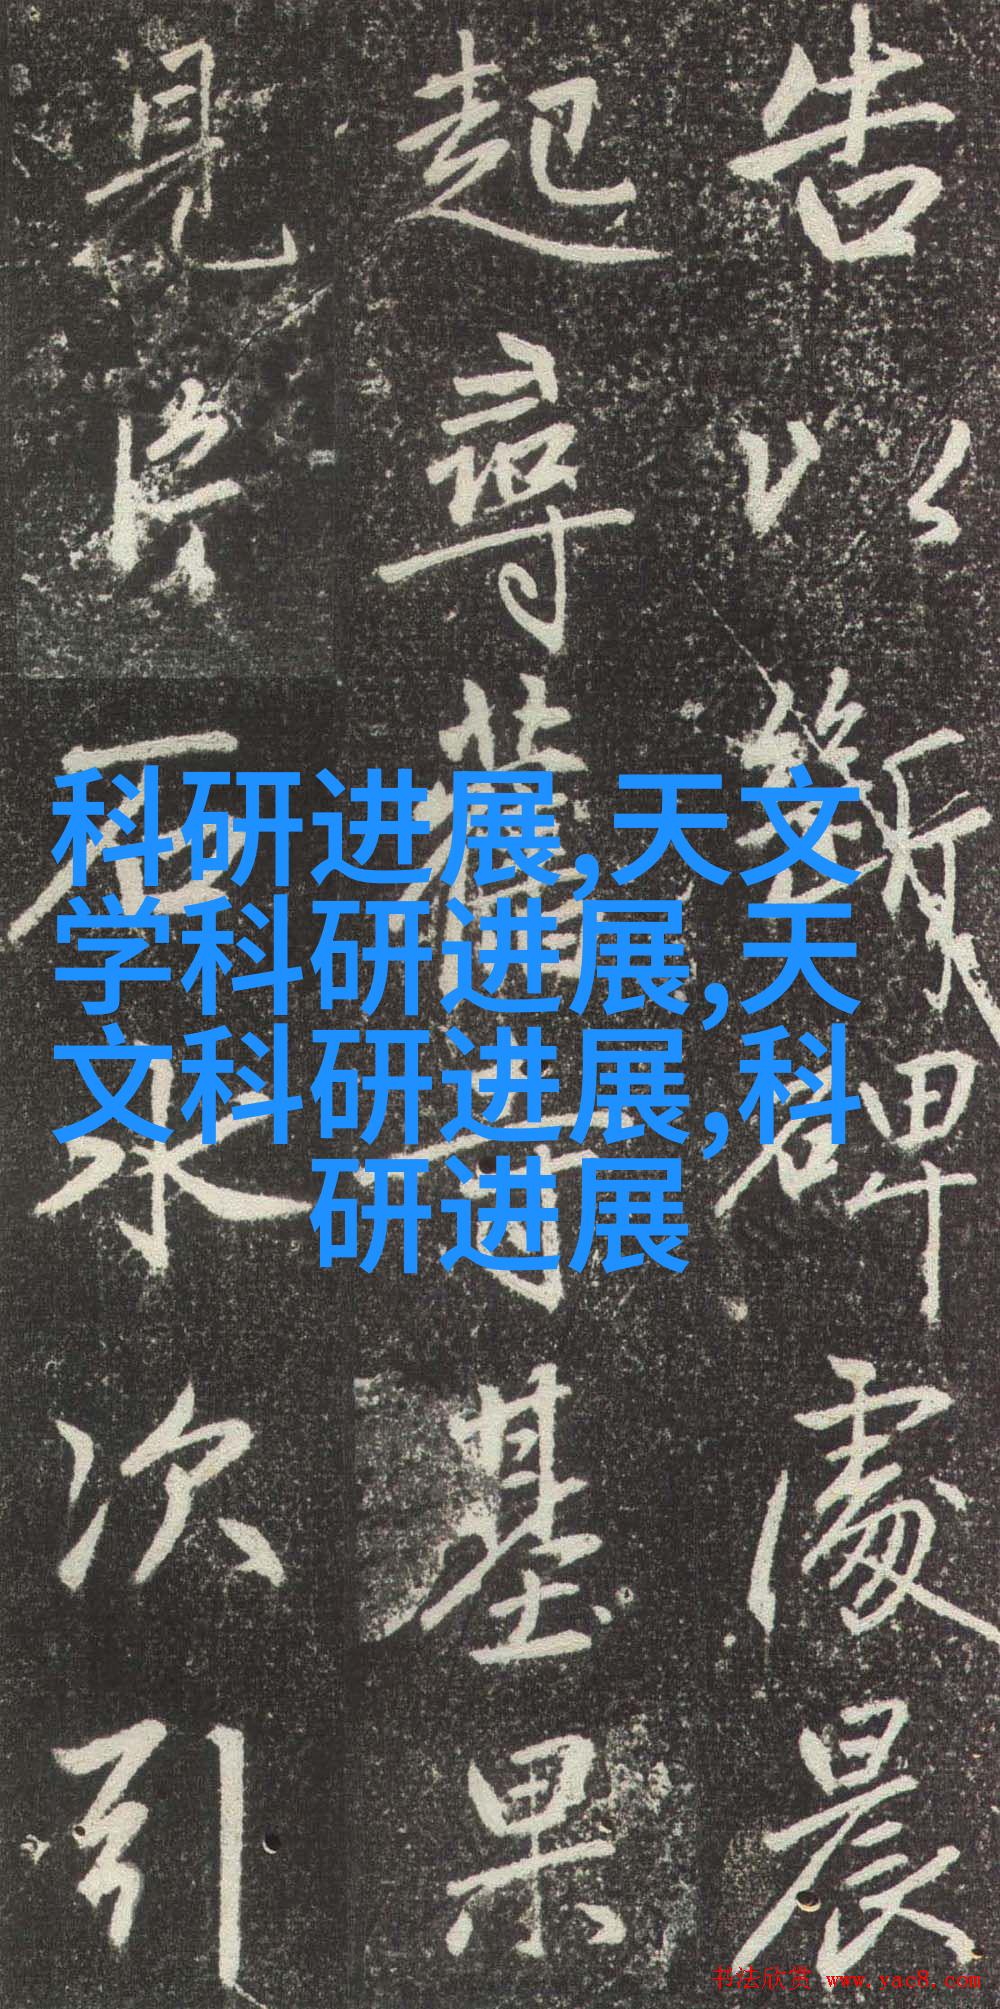 告以碑處晨
起尋舊寺基果
見片石水次引
科研进展,天文
学科研进展,天
文科研进展,科
研进展
书法欣赏 www.yac8.com